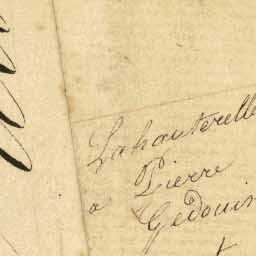 Lahauterelle
a Pierre
Gédouin